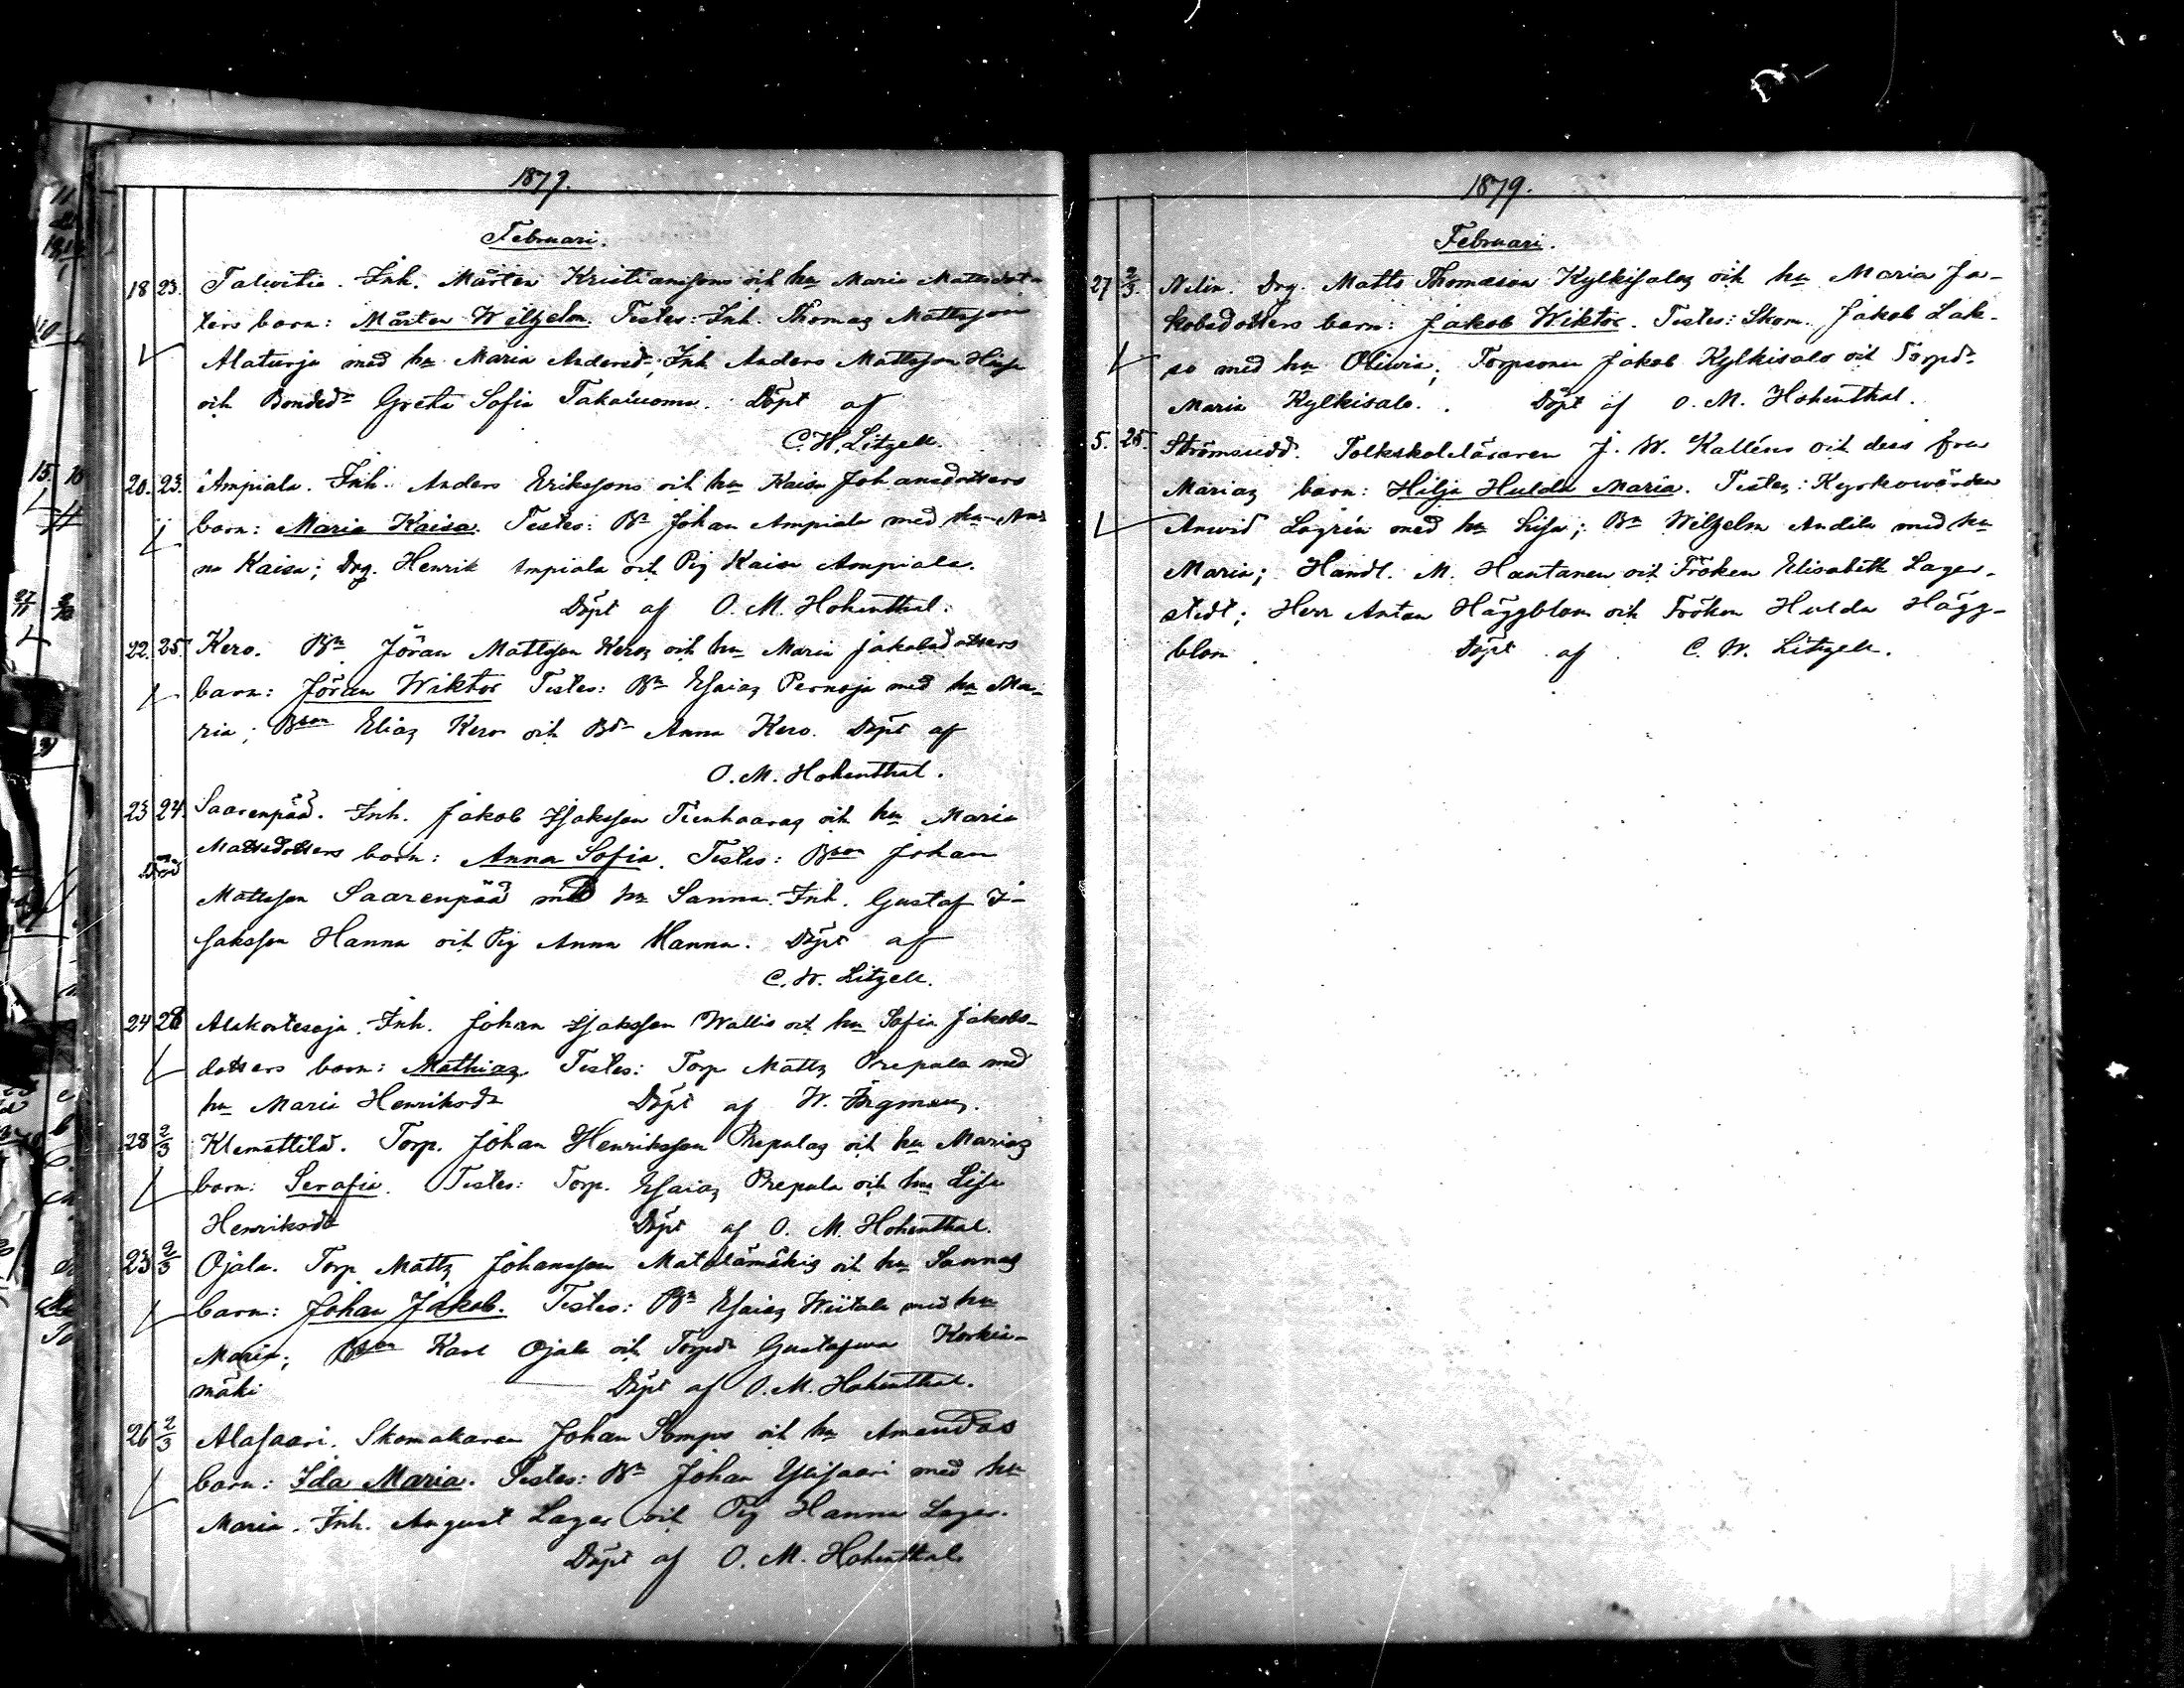 1879.
Februari.
18 23. Talvitie. Inh. Mårten Kristianssons och hu Maria Mattsdot-
ters barn: Mårten Wilhelm. Testes: Inh. Thomas Mattsson
Alaturja med hu Maria Andersdr; Inh Anders Mattsson
och Bondedr Greta Sofia Takaluoma. Döpt af
C. W. Litzell.
20. 23. Ampiala. Inh. Anders Erikssons och hu Kaisa Johansdotters
barn: Maria Kaisa. Testes: Bn Johan Ampiala med hu An-
na Kaisa; Drg. Henrik Ampiala och Pig Kaisa Ampiala.
Döpt af O. M. Hohenthal.
22. 25. Kero. Bn. Jöran Mattsson Keros och hu Maria Jakobsdotters
barn: Jöran Wiktor Testes: Bn Esaias Pernaja med hu Ma-
ria; Bson Elias Kero och Bdr Anna Kero. Döpt af
O. M. Hohenthal.
23 24. Saarenpää. Inh. Jakob Isaksson Tienhaaras och hu Maria
Mattsdotters barn: Anna Sofia. Testes: Bson Johan
Mattsson Saarenpää med hu Sanna. Inh. Gustaf I-
saksson Hanna och Pig Anna Hanna. Döpt af
C. W. Litzell.
24 28 Alakortesoja. Inh. Johan Isaksson Wallis och hu Sofia Jakobs-
dotters barn: Mathias. Testes: Torp Matts Prepula med
hu Maria Henriksdr Döpt af W.
28 2/3 Klemettilä. Torp. Johan Henriksson Prepulas och hu Marias
barn: Serafia. Testes: Torp. Esaias Prepula och hu Lisa
Henriksdr Döpt af O. M. Hohenthal.
23 2/3 Ojala. Torp Matts Johansson Matolamäkis och hu Sannas
barn: Johan Jakob. Testes: Bn Esaias Wiitala med hu
Maria; Bson Karl Ojala och Torpdr Gustafwa Korkia-
mäki Döpt af O. M. Hohenthal.
26 2/3 Alasaari. Skomakaren Johan Sompos och hu Amandas
barn: Ida Maria. Testes: Bn Johan Ylisaari med hu
Maria. Inh. August Lager och Pig Hanna Lager.
Döpt af O. M. Hohenthal.
1879.
Februari.
27 2/3. Nelin. Drg. Matts Thomasson Kylkisalos och hu Maria Ja-
kobsdotters barn: Jakob Wiktor. Testes: Skom. Jakob Lak-
so med hu Oliwia; Torpsonen Jakob Kylkisalo och Torpdr
Maria Kylkisalo. Döpt af O. M. Hohenthal.
5. 25. Strömsudd. Folkskoleläraren J. W. Kalléns och dess fru
Marias barn: Hilja Hulda Maria. Testes: Kyrkowärden
Arwid Lagrén med hu Lisa; Bn Wilhelm Andila med hu
Maria; Handl. M. Hautanen och Fröken Elisabeth Lager-
stedt; Herr Anton Häggblom och Fröken Hulda Hägg-
blom Döpt af C. W. Litzell.